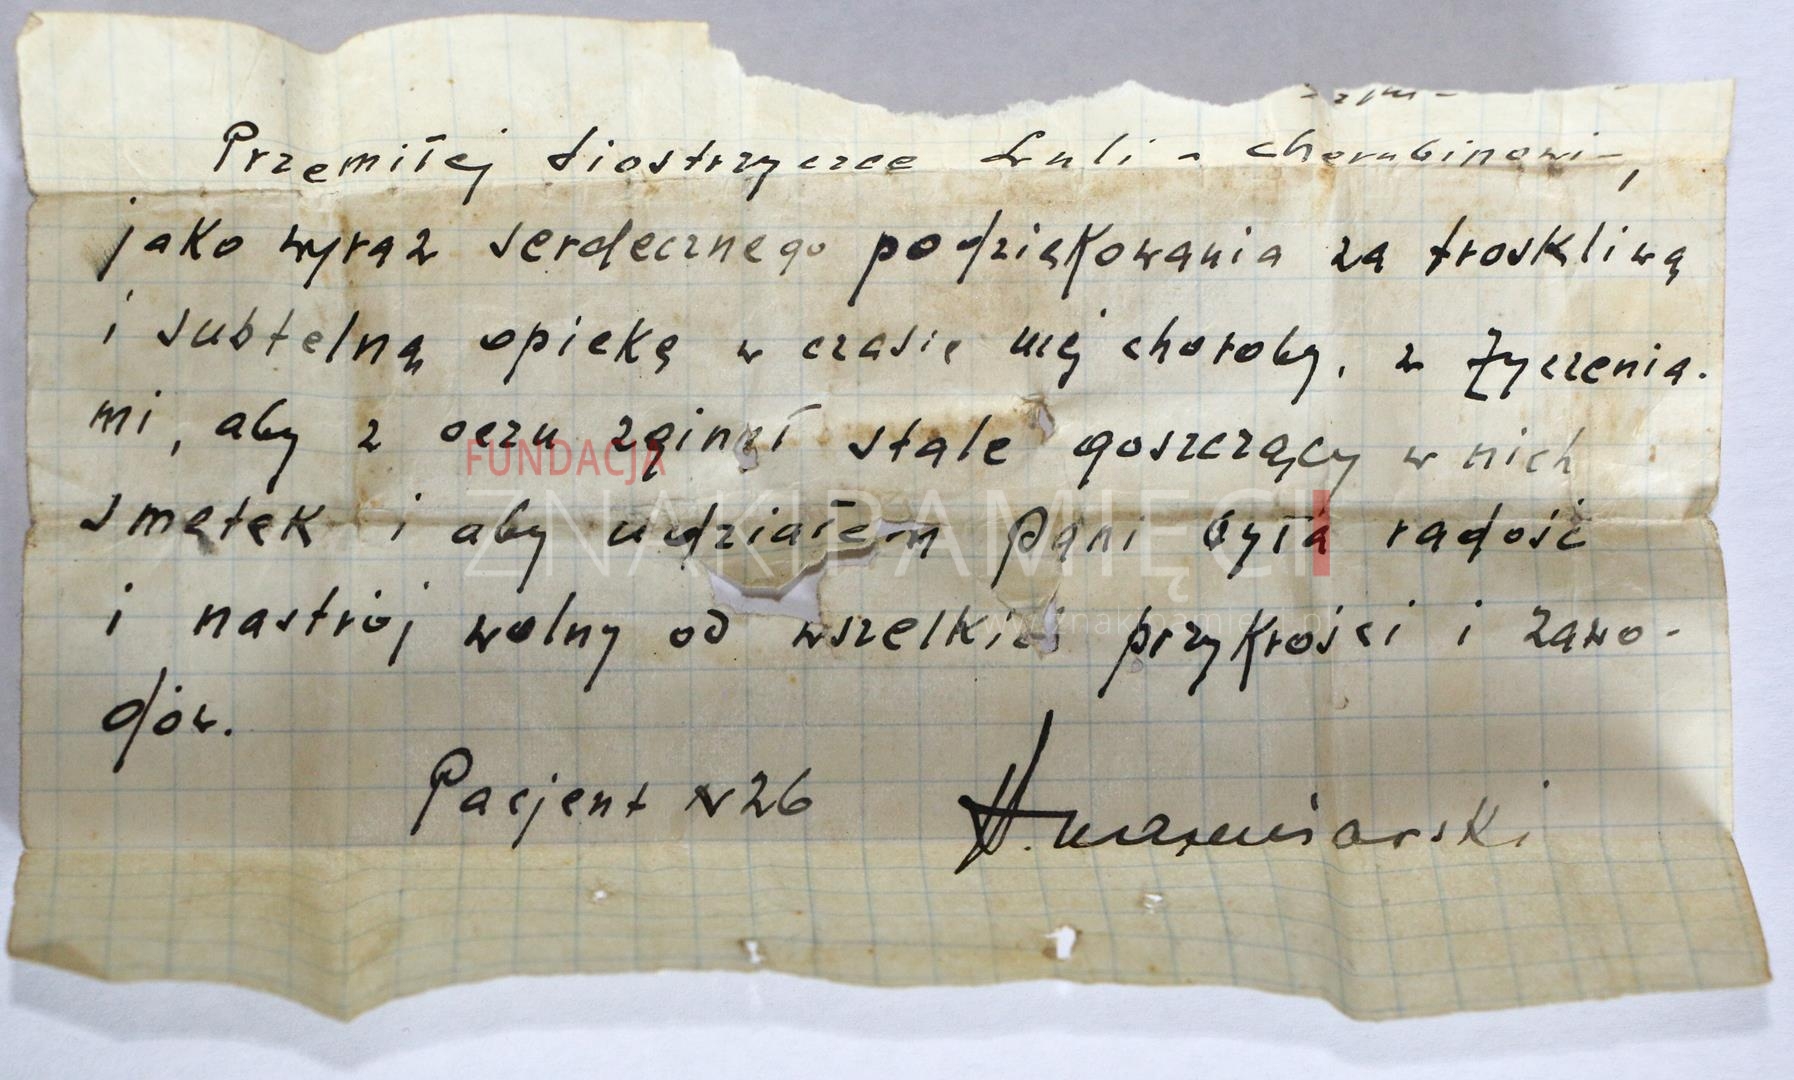 Przemiłej siostrzyczce Luli - cherubinowi-,
jako wyraz serdecznego podziękowania za troskliwą
i subtelną opiekę w czasie mej choroby, z życzenia-
mi, aby z oczu zginął stale goszczący w nich
smętek i aby udziałem Pani była radość
i nastrój wolny od wszelkiej przykrości i zawo-
dów.
Pacjent N 26
FUNDACJA
ZNAKI PAMIĘCI